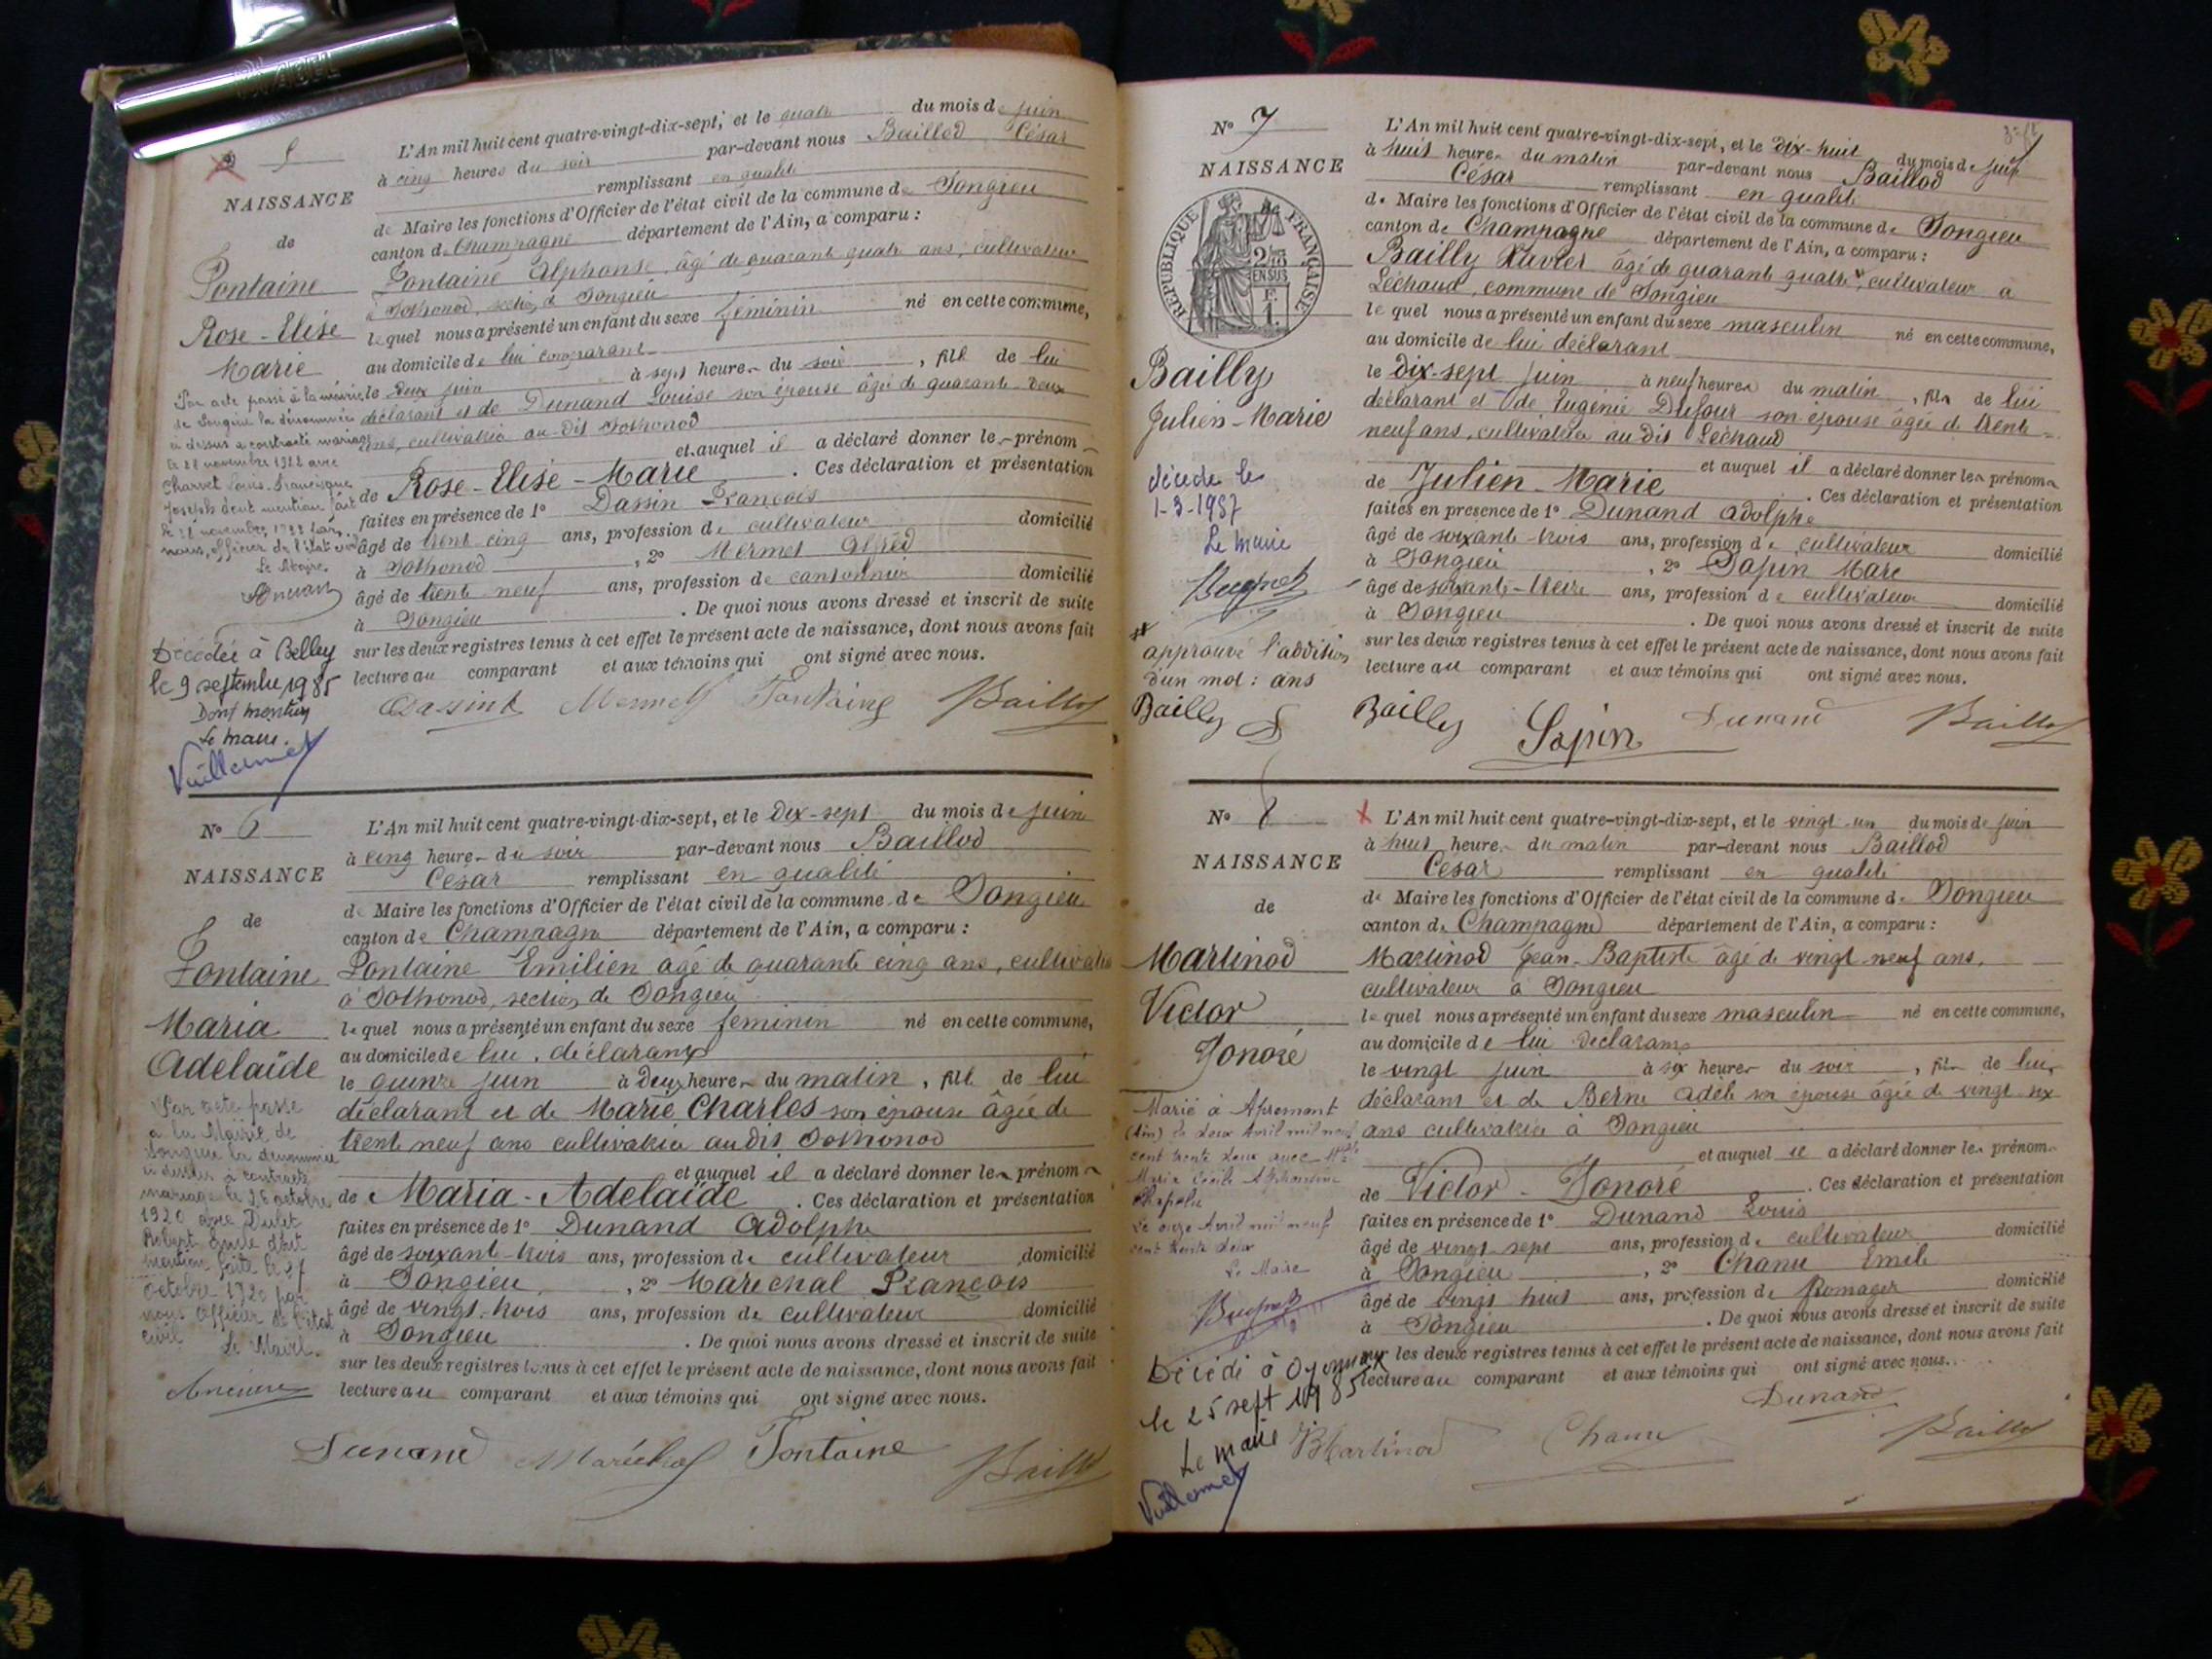 5
NAISSANCE
de
Fontaine
Rose-Elise
Marie
Par acte passé à la mairie
de Songieu la dénommée
ci dessus a contracté mariage
le 28 novembre 1922 avec
Charvet Louis-Francisque
Joseph dont mention fait
nous, officier de l'état civil
Le Maire
Décédée à Belley
le 9 septembre 1985
Dont mention
Le maire.
Vuillermet
L'An mil huit cent quatre-vingt-dix-sept, et le quatre du mois de juin
à cinq heures du soir par-devant nous Baillod César
remplissant en qualité
de Maire les fonctions d'Officier de l'état civil de la commune de Songieu
canton de Champagne département de l'Ain, a comparu :
Fontaine Alphonse, âgé de quarante quatre ans, cultivateur
à Sothonod, section de Songieu
lequel nous a présenté un enfant du sexe féminin né en cette commune,
au domicile de lui comparant
le deux juin à sept heures du soir, fille de lui
déclarant et de Dunand Louise son épouse âgée de quarante deux
ans, cultivatrice au dit Sothonod
et auquel il a déclaré donner les prénoms
de Rose-Elise-Marie. Ces déclaration et présentation
faites en présence de 1° Dassin François
âgé de trente cinq ans, profession de cultivateur domicilié
à Sothonod, 2° Mermet Alfred
âgé de trente neuf ans, profession de cantonnier domicilié
à Songieu. De quoi nous avons dressé et inscrit de suite
sur les deux registres tenus à cet effet le présent acte de naissance, dont nous avons fait
lecture au comparant et aux témoins qui ont signé avec nous.
Dassin Mermet Fontaine Baillod
N° 6
NAISSANCE
de
Fontaine
Maria
Adelaïde
Par acte passé
à la Mairie de
Songieu la dénommée
ci dessus a contracté
mariage le 26 octobre
1920 avec Dulet
Robert dont
mention faite le 27
octobre 1920 par
nous officier de l'état
civil
Le Maire.
L'An mil huit cent quatre-vingt-dix-sept, et le dix-sept du mois de juin
à cinq heures du soir par-devant nous Baillod
César remplissant en qualité
de Maire les fonctions d'Officier de l'état civil de la commune de Songieu
canton de Champagne département de l'Ain, a comparu :
Fontaine Emilien âgé de quarante cinq ans, cultivateur
à Sothonod, section de Songieu
lequel nous a présenté un enfant du sexe féminin né en cette commune,
au domicile de lui, déclarant
le quinze juin à deux heures du matin, fille de lui
déclarant et de Marie Charles son épouse âgée de
trente neuf ans cultivatrice audit Sothonod
et auquel il a déclaré donner les prénoms
de Maria-Adelaïde. Ces déclaration et présentation
faites en présence de 1° Dunand Adolphe
âgé de soixante-trois ans, profession de cultivateur domicilié
à Songieu, 2° Maréchal François
âgé de vingt-trois ans, profession de cultivateur domicilié
à Songieu. De quoi nous avons dressé et inscrit de suite
sur les deux registres tenus à cet effet le présent acte de naissance, dont nous avons fait
lecture au comparant et aux témoins qui ont signé avec nous.
Dunand Maréchal Fontaine Baillod
N° 7
NAISSANCE
RÉPUBLIQUE FRANÇAISE
EN SUS
Bailly
Julien-Marie
décédé le
1-3-1987
Le maire
approuvé l'addition
d'un mot : ans
Bailly
L'An mil huit cent quatre-vingt-dix-sept, et le dix-huit du mois de juin
à huit heures du matin par-devant nous Baillod
César remplissant en qualité
de Maire les fonctions d'Officier de l'état civil de la commune de Songieu
canton de Champagne département de l'Ain, a comparu :
Bailly Xavier âgé de quarante quatre, cultivateur à
Léchaud, commune de Songieu
lequel nous a présenté un enfant du sexe masculin né en cette commune,
au domicile de lui déclarant
le dix-sept juin à neuf heures du matin, fils de lui
déclarant et de Eugénie Dufour son épouse âgée de trente-
neuf ans, cultivatrice au dit Léchaud
et auquel il a déclaré donner les prénoms
de Julien-Marie. Ces déclaration et présentation
faites en présence de 1° Dunand Adolphe
âgé de soixante-trois ans, profession de cultivateur domicilié
à Songieu, 2° Sapin Marc
âgé de soixante-treize ans, profession de cultivateur domicilié
à Songieu. De quoi nous avons dressé et inscrit de suite
sur les deux registres tenus à cet effet le présent acte de naissance, dont nous avons fait
lecture au comparant et aux témoins qui ont signé avec nous.
Bailly Sapin Dunand Baillod
N° 8
NAISSANCE
de
Martinod
Victor
Honoré
Marié à Apremont
(Ain) le deux Avril mil neuf
cent trente deux avec Mlle
Marie Cécile Alphonsine
Le onze Avril mil neuf
cent trente deux
Le Maire
Décédé à Oyonnax
le 25 sept 1985
Le maire
Vuillermet
L'An mil huit cent quatre-vingt-dix-sept, et le vingt un du mois de juin
à huit heures du matin par-devant nous Baillod
César remplissant en qualité
de Maire les fonctions d'Officier de l'état civil de la commune de Songieu
canton de Champagne département de l'Ain, a comparu :
Martinod Jean-Baptiste âgé de vingt-neuf ans,
cultivateur à Songieu
lequel nous a présenté un enfant du sexe masculin né en cette commune,
au domicile de lui déclarant
le vingt juin à six heures du soir, fils de lui
déclarant et de Berne Adèle son épouse âgée de vingt six
ans cultivatrice à Songieu
et auquel il a déclaré donner les prénoms
de Victor-Honoré. Ces déclaration et présentation
faites en présence de 1° Dunand Louis
âgé de vingt sept ans, profession de cultivateur domicilié
à Songieu, 2° Chanu Emile
âgé de vingt huit ans, profession de fromager domicilié
à Songieu. De quoi nous avons dressé et inscrit de suite
sur les deux registres tenus à cet effet le présent acte de naissance, dont nous avons fait
lecture au comparant et aux témoins qui ont signé avec nous.
Dunand
Martinod Chanu Baillod